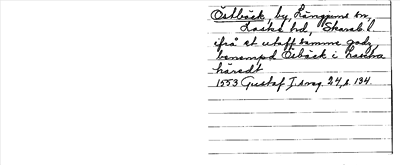 Östbäck, by, Långjums sn,
Laske hd, Skarab. l.
ifrå et utaff samme godz
benempd Ösbäck i
häredt
1553 Gustaf I:s reg. 24, s. 134.